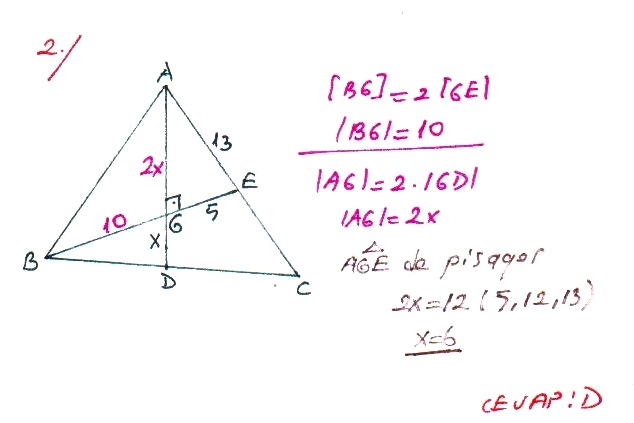 2./
A
2x
13
E
6
5
10
x
B
D
C
[BG]=2[GE]
|BG|=10
|AG|=2.|GD|
|AG|=2x
AGE de pisagor
2x=12 (5,12,13)
x=6
CEVAP:D